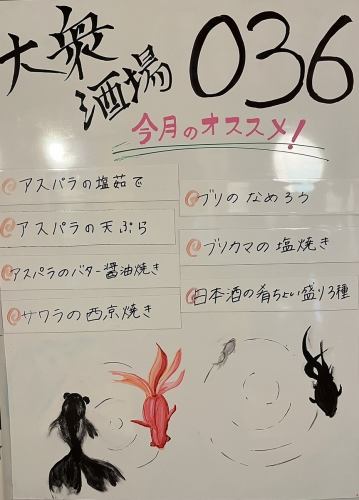 大衆
酒場
036
今月のオススメ!
アスパラの塩茹で
アスパラの天ぷら
アスパラのバター醤油焼き
サワラの西京焼き
ブリのなめろう
ブリカマの塩焼き
日本酒の肴ちょい盛り3種